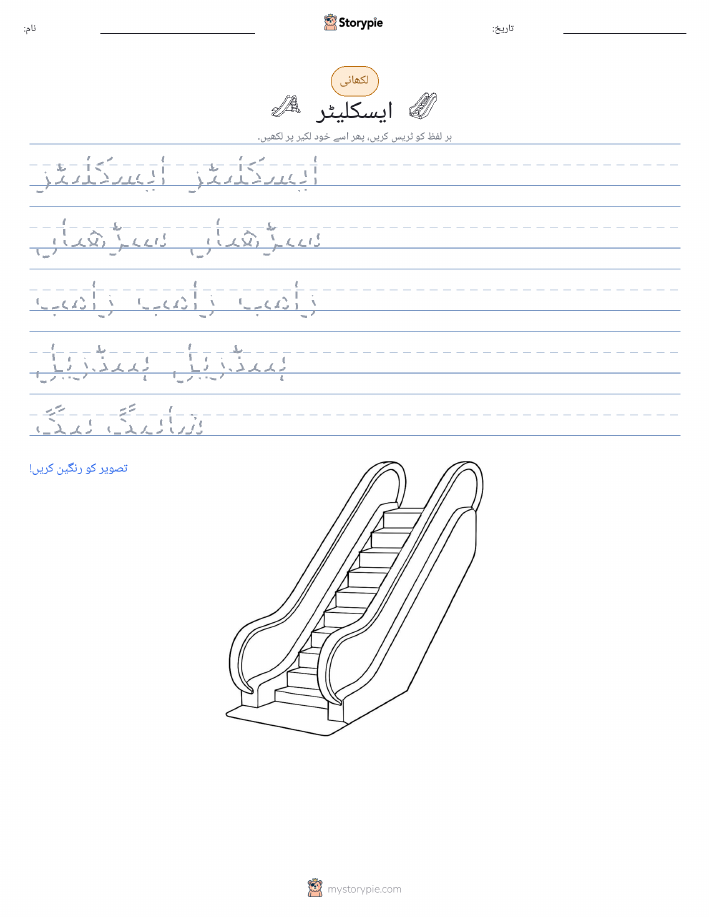 نام: Storypie تاریخ:
لکھائی
ایسکلیٹر
ہر لفظ کو ٹریس کریں، پھر اسے خود لکیر پر لکھیں۔
ایسکلیٹر ایسکلیٹر
سیڑھیاں سیڑھیاں
ہینڈریل ہینڈریل
شاپنگ بیگ
تصویر کو رنگین کریں!
mystorypie.com